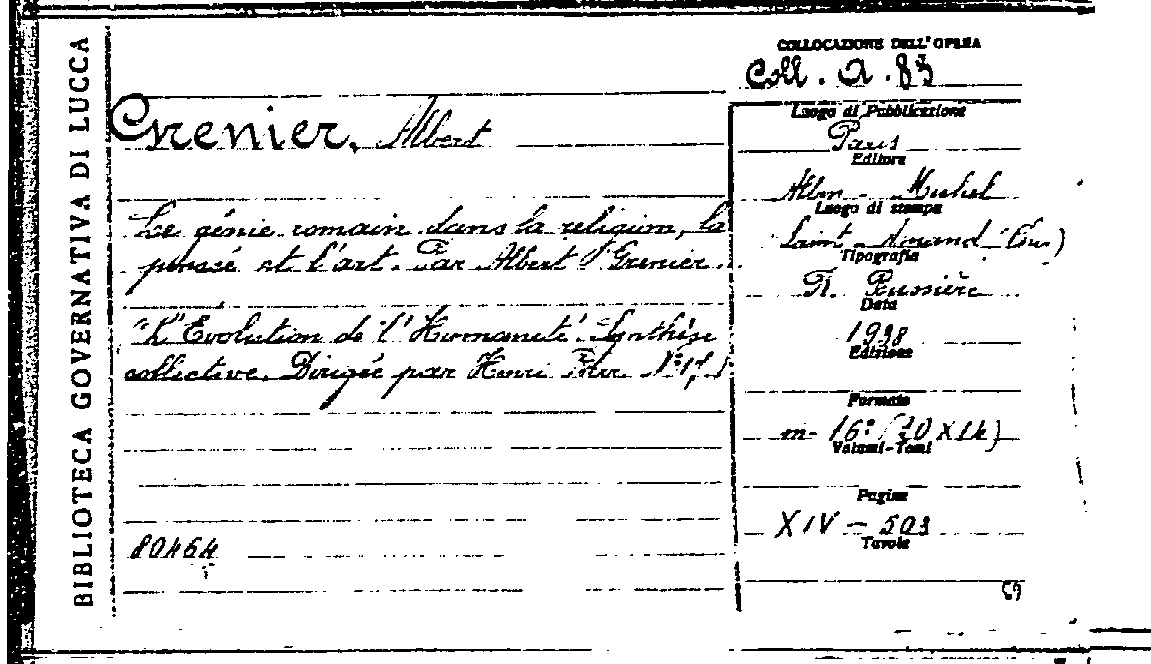 BIBLIOTECA GOVERNATIVA DI LUCCA
COLLOCAZIONE DELL'OPERA
Coll. A. 83
Grenier, Albert
Le génie romain dans la religion, la
pensé et l'art. Par Albert Grenier.
"L'Evolution de l'Humanité". Synthèse
collective. Dirigée par Henri
80464
Luogo di Pubblicazione
Paris
Editore
Albin - Michel
Luogo di stampa
Saint - Amand
Tipografia
R. Bussière
Data
1938
Edizione
Formato
in- 16°
Volumi-Tomi
Pagine
XIV - 503
Tavole